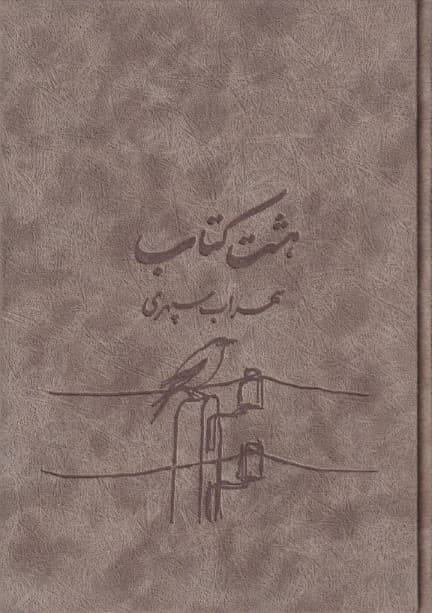 هشت کتاب
سهراب سپهری